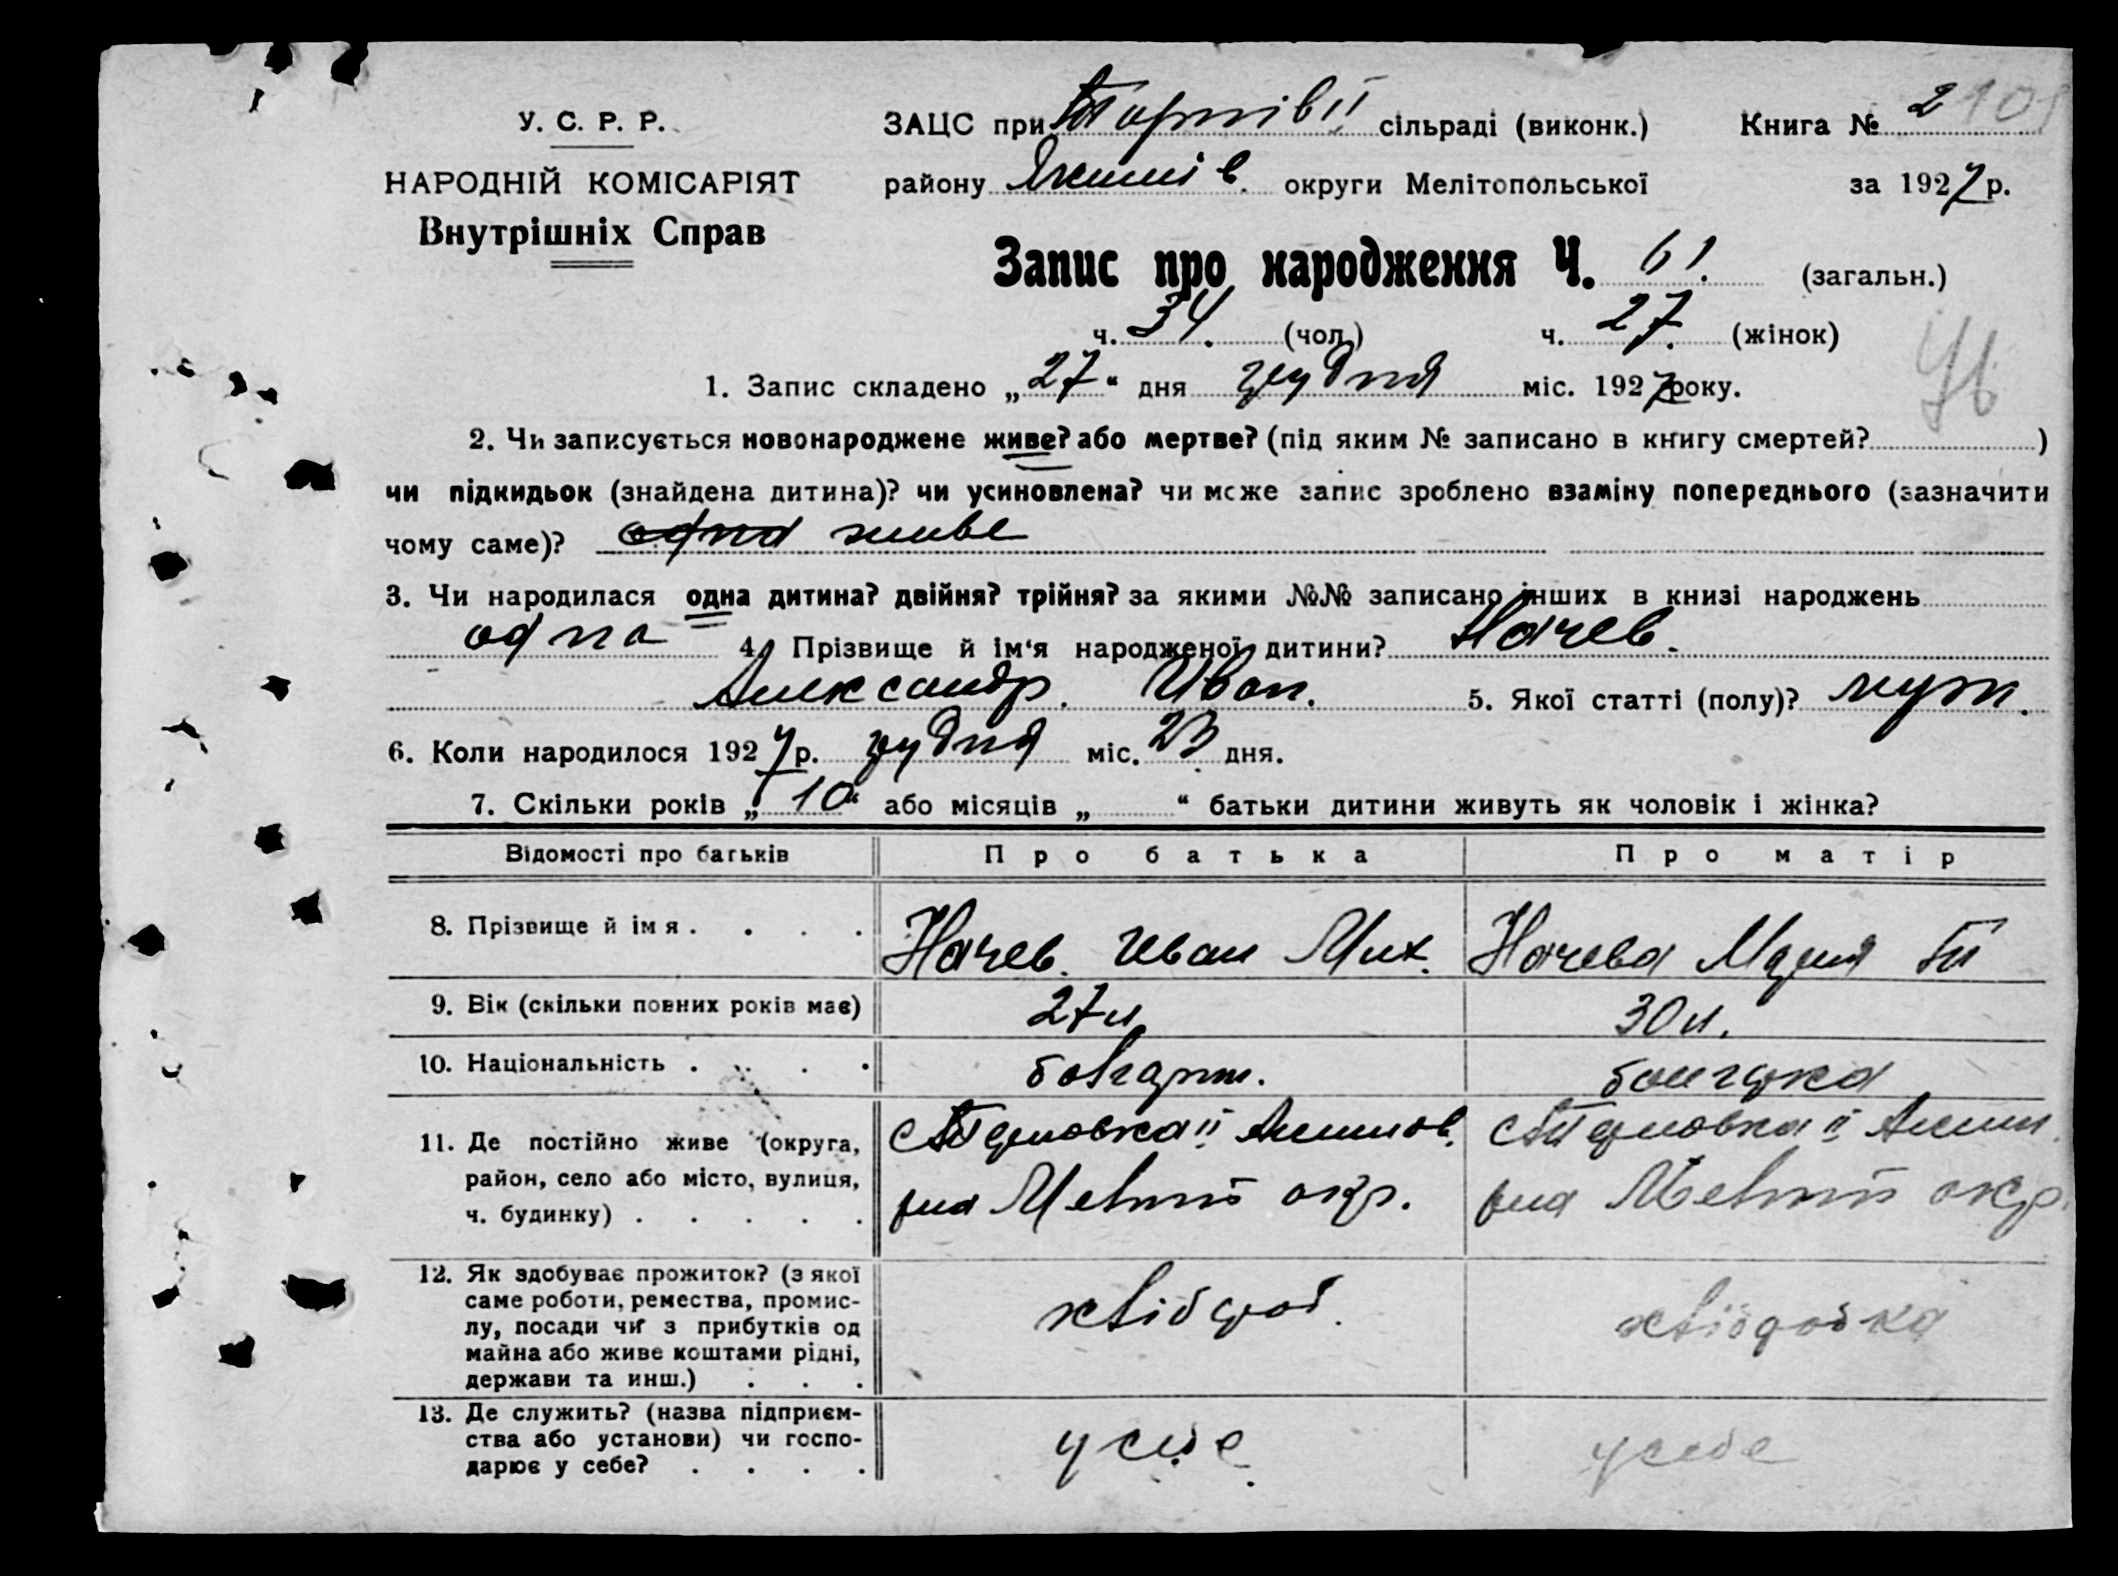 У. С. Р. Р.
НАРОДНІЙ КОМІСАРІЯТ
Внутрішніх Справ
ЗАЦС при сільраді (виконк.) Книга № 2
району Якимів. округи Мелітопольської за 1927 р.
Запис про народження Ч. 61. (загальн.)
ч. 34. (чол.) ч. 27. (жінок)
1. Запис складено „27“ дня грудня міс. 1927 року.
2. Чи записується новонароджене живе? або мертве? (під яким № записано в книгу смертей? )
чи підкидьок (знайдена дитина)? чи усиновлена? чи може запис зроблено взаміну попереднього (зазначити
чому саме)? одна живе
3. Чи народилася одна дитина? двійня? трійня? за якими №№ записано інших в книзі народжень
одна 4. Прізвище й ім‘я народженої дитини? Начев.
Александр. Иван. 5. Якої статті (полу)? муж.
6. Коли народилося 1927 р. грудня міс. 23 дня.
7. Скільки років „10“ або місяців „ “ батьки дитини живуть як чоловік і жінка?
Відомості про батьків Про батька Про матір
8. Прізвище й імя . . . . Начев. Иван Мих. Начева Мария
9. Вік (скільки повних років має) 27 л. 30 л.
10. Національність . . . . болгарин. болгарка
11. Де постійно живе (округа,
район, село або місто, вулиця,
ч. будинку) . . . . .
окр. окр.
12. Як здобуває прожиток? (з якої
саме роботи, ремества, промис-
лу, посади чи з прибутків од
майна або живе коштами рідні,
держави та инш.) . . .
хлібороб. хліборобка
13. Де служить? (назва підприєм-
ства або установи) чи госпо-
дарює у себе? . . . .
у себе у себе